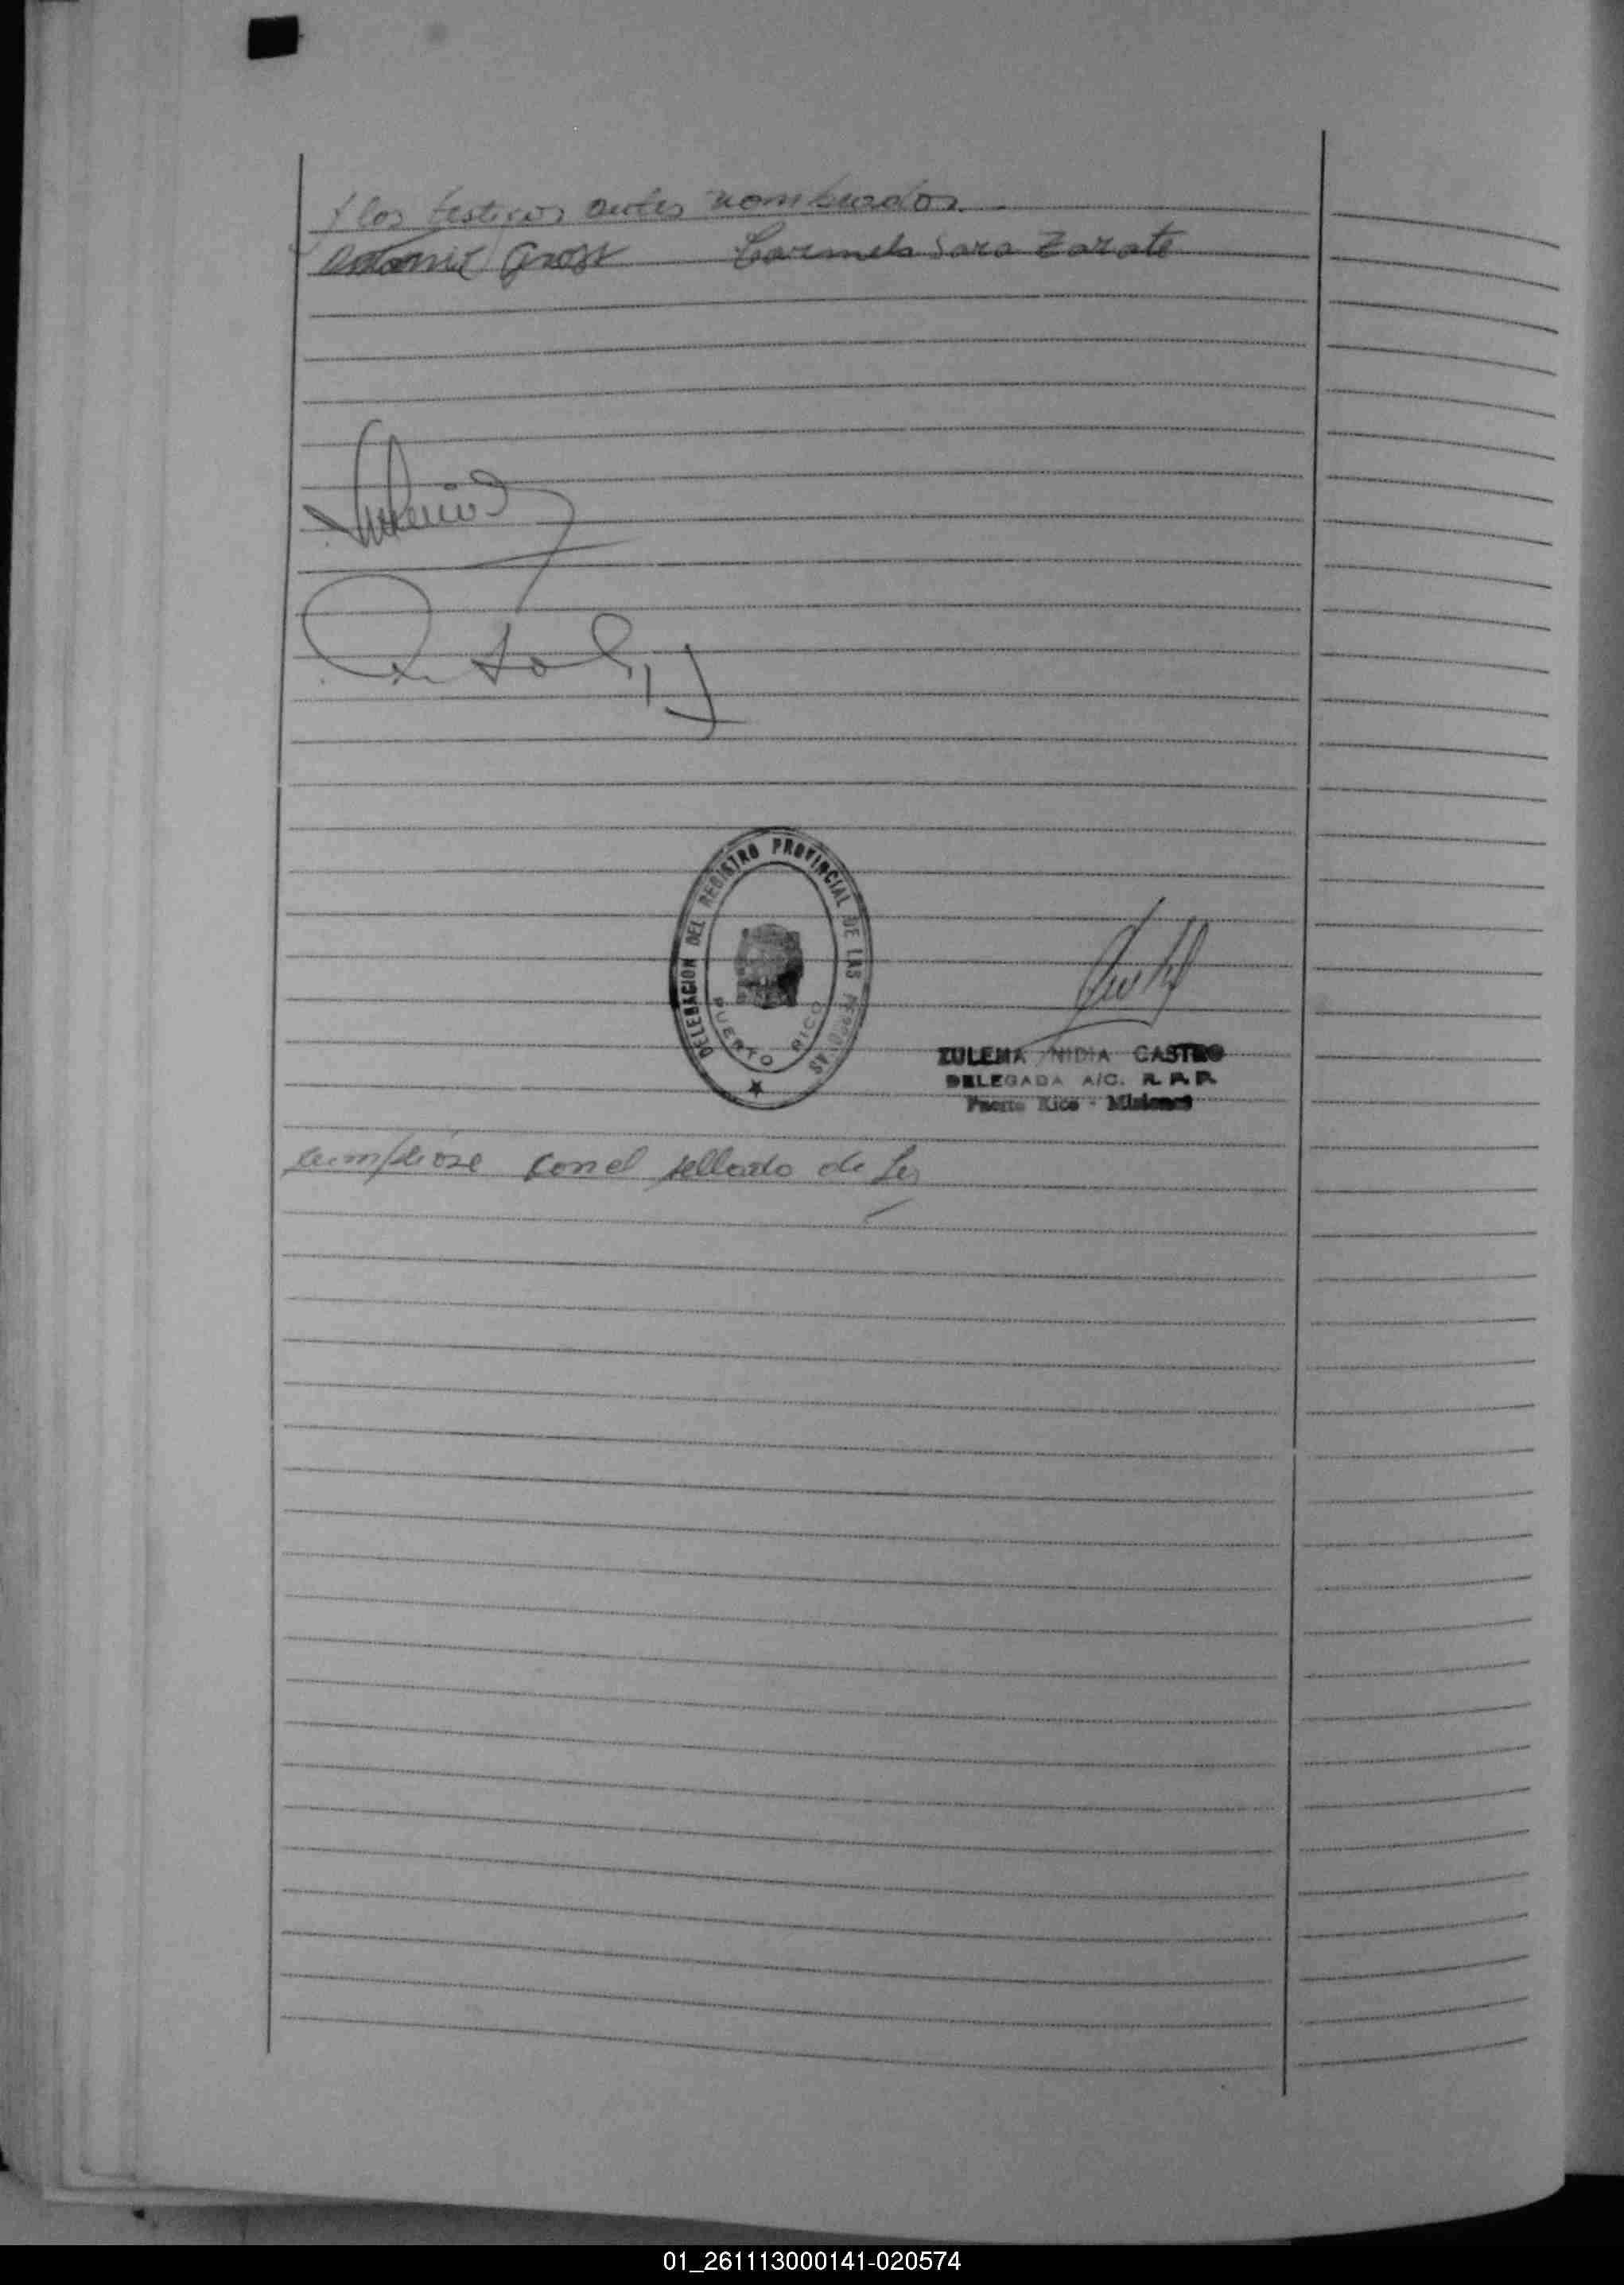 y los testigos antes nombrados
Antonio Gross Carmela Sara Zarate
DELEGACION DEL REGISTRO PROVINCIAL DE LAS PERSONAS
PUERTO RICO
ZULEMA NIDIA CASTRO
DELEGADA A/C. R. P. P.
Puerto Rico - Misiones
cumplióse con el sellado de Ley
01_261113000141-020574